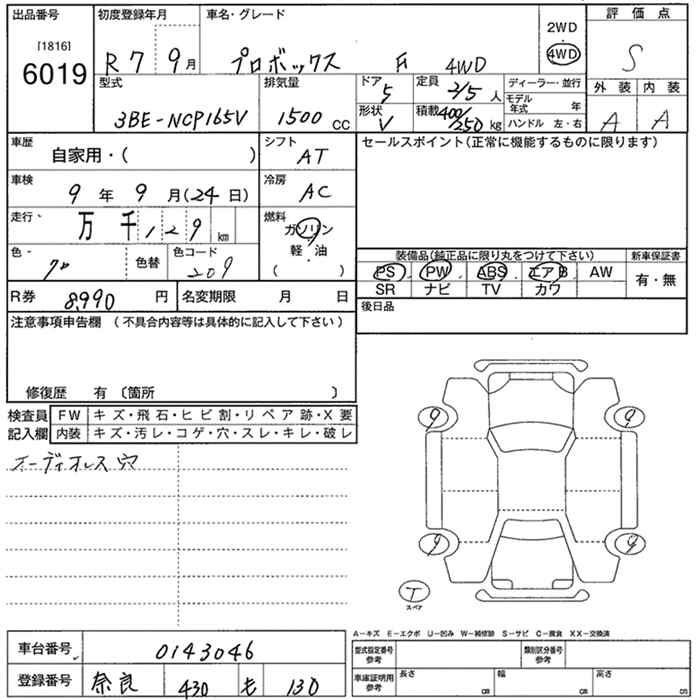 出品番号 初度登録年月 車名・グレード 2WD 評価点
[1816] R7 9月 プロボックス F 4WD 4WD S
6019
型式 排気量 ドア 5 定員 2/5 人 ディーラー・並行 外装 内装
3BE-NCP165V 1500 CC 形状 V 積載 400/250 kg モデル年式 年 A A
ハンドル 左・右
車歴 自家用・( ) シフト AT セールスポイント(正常に機能するものに限ります)
車検 9年 9月(24日) 冷房 AC
走行 万 千 129 km 燃料 ガソリン 軽・油 ( )
色 色替 色コード 209 装備品(純正品に限り丸をつけて下さい) 新車保証書
PS PW ABS エアB AW 有・無
SR ナビ TV カワ
R券 8,990 円 名変期限 月 日 後日品
注意事項申告欄 (不具合内容等は具体的に記入して下さい)
修復歴 有 〔箇所 〕
検査員記入欄 FW キズ・飛石・ヒビ割・リペア跡・X要
内装 キズ・汚レ・コゲ・穴・スレ・キレ・破レ
オーディオレス穴
9 9
9 9
T
スペア
A-キズ E-エクボ U-凹み W-補修跡 S-サビ C-腐食 XX-交換済
車台番号 0143046 型式指定番号 参考 類別区分番号 参考
登録番号 奈良 430 も 130 車庫証明用 参考 長さ cm 幅 cm 高さ cm